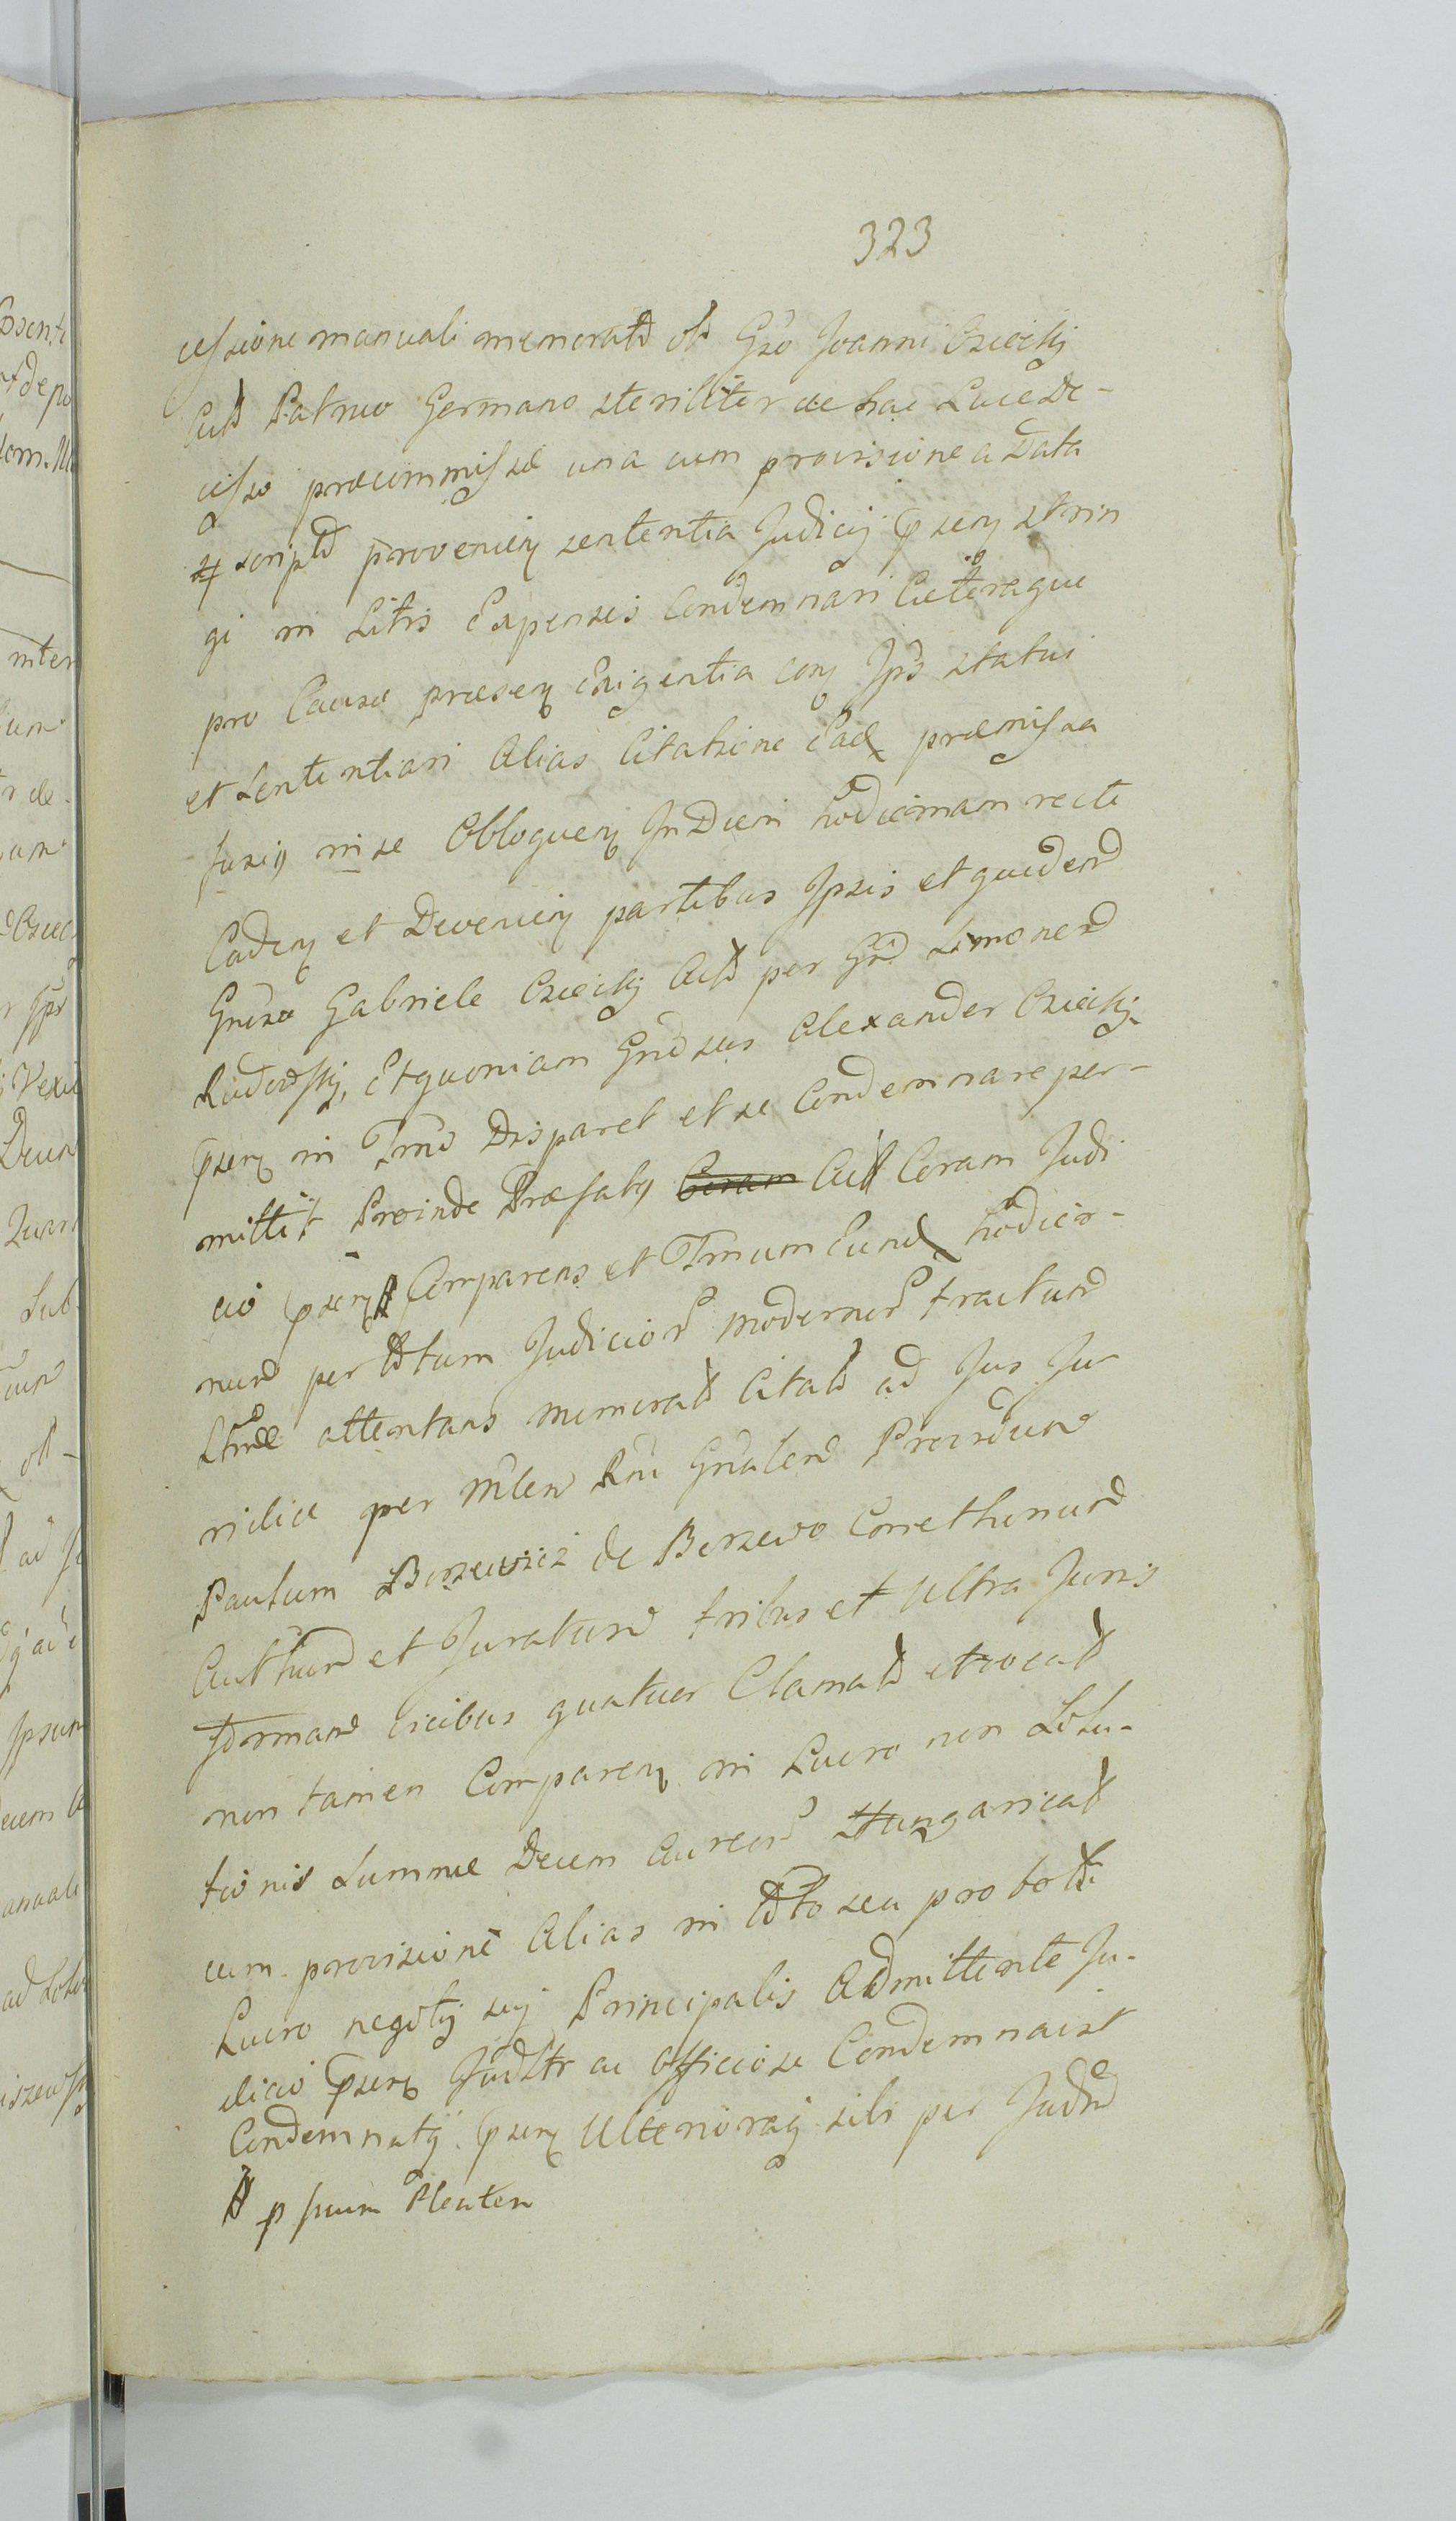 323
cessione manuali memorata olim Gñso Joanni Osiecky
Act Patruo Germano steriliter de hac Luce De-
cesso præcommissæ una cum provisione a Data
scripta provenien sententia Judicij psen strin
gi in Litis Expensis Condemnari Cæteraque
pro Causæ præsen Exigentia con Jpso statui
et Sententiari Alias Citatione Ead præmissa
fusius in se Obloquen In Diem hodiernam recte
Caden et Devenien partibus Ipsis et quidem
Gnoso Gabriele Osiecky Act per Gñd Simonem
Rudowsky, Etquoniam Gñosus Alexander Osiecky
psen in Tmno Disparet et se Condemnare per-
mittit Proinde Præfatus Act Coram Judi
cio psen Comparens et Tmnum Eund hodier-
num per totum Judicior modernor tractum
attentans memorat Citat ad Jus Ju-
ridice per Mlem Rni Gñalem Providum
Paulum Borzewicz de Borzewo Conethunum
Authum et Juratum tribus et Ultra Juris
formam vicibus quatuor Clamat et vocat
non tamen Comparen in Lucro non Solu-
tionis Summæ Decem Aureor Hungarical
cum provisione Alias in toto seu pro toto
Lucro negotij sui Principalis Admittente Ju-
dicio psen Judltr ac Officiose Condemnavit
Condemnatij psen Ulterioraq sibi per Judm
p suum Plenten